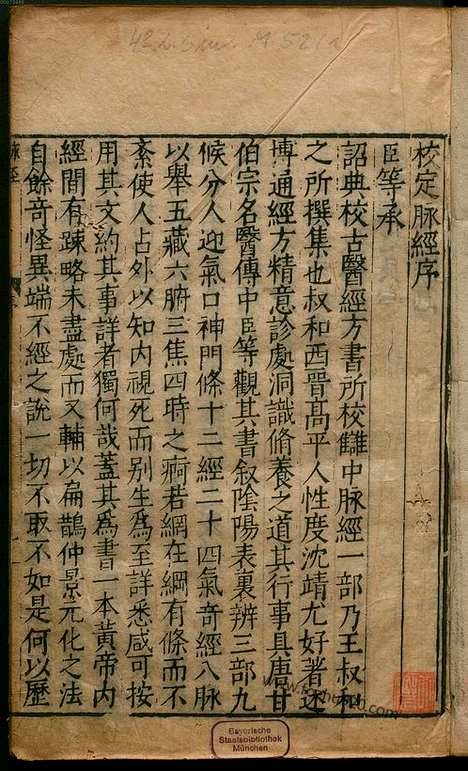 校定脉經序
臣等承
詔典校古醫經方書所校讎中脉經一部乃王叔和
之所撰集也叔和西晉髙平人性度沈靖尤好著述
博通經方精意診處洞識脩養之道其行事具唐甘
伯宗名醫傳中臣等觀其書叙陰陽表裏辨三部九
候分人迎氣口神門條十二經二十四氣奇經八脉
以舉五藏六腑三焦四時之痾若網在綱有條而不
紊使人占外以知内視死而别生爲至詳悉咸可按
用其文約其事詳者獨何哉蓋其爲書一本黄帝内
經間有踈略未盡處而又輔以扁鵲仲景元化之法
自餘竒怪異端不經之說一切不取不如是何以歷
Bayerische
Staatsbibliothek
München